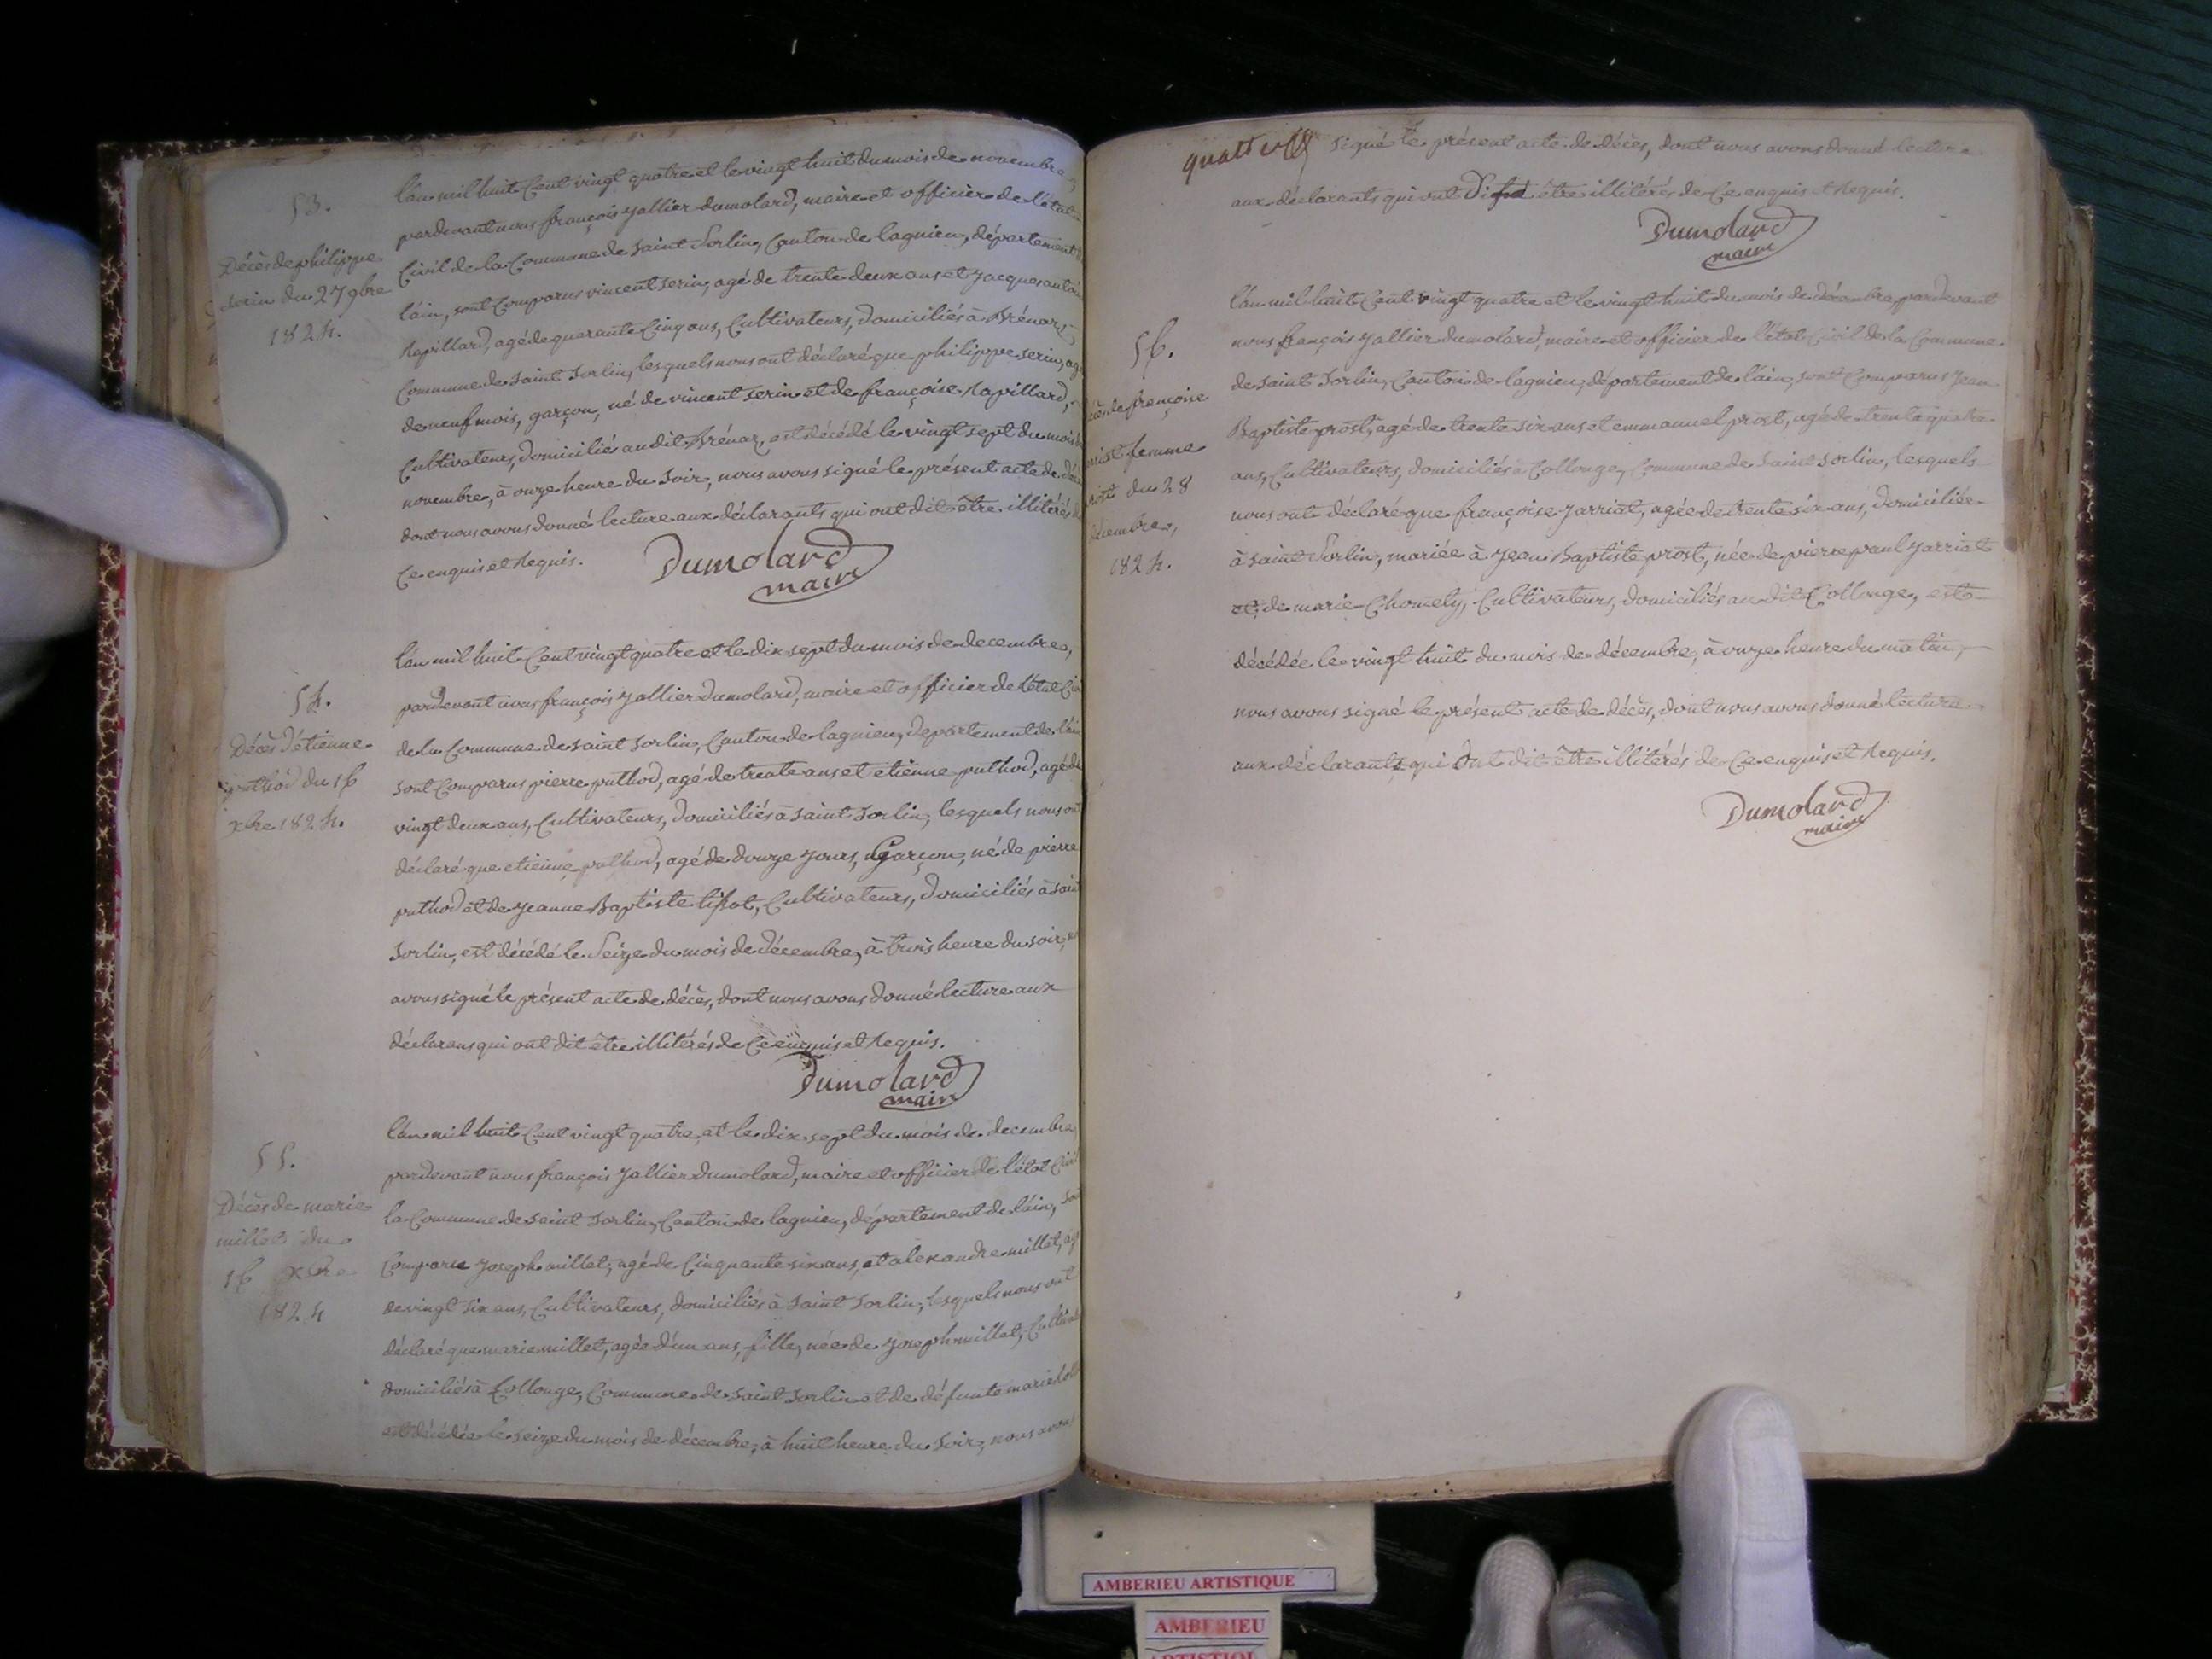 53.
Décès de philippe
serin du 27 9bre
1824.
l'an mil huit Cent vingt quatre et le vingt huit du mois de novembre,
pardevant nous françois Jallier dumolard, maire et officier de l'état
Civil de la Commune de saint Sorlin, Canton de lagnieu, département
l'ain, sont Comparus vincent serin, agé de trente deux ans et Jacques
Rapillard, agé de quarante Cinq ans, Cultivateurs, domiciliés à Brénaz
Commune de saint Sorlin, lesquels nous ont déclaré que philippe serin,
de neuf mois, garçon, né de vincent serin et de françoise Rapillard,
Cultivateurs, domiciliés audit Brénaz, est décédé le vingt sept du mois
novembre, à onze heure du soir, nous avons signé le présent acte de
dont nous avons donné lecture aux déclarants qui ont dit être illitérés
Ce enquis et Requis.
Dumolard
maire
54.
Décès d'étienne
puthod du 16
xbre 1824.
l'an mil huit Cent vingt quatre et le dix sept du mois de decembre,
pardevant nous françois Jallier Dumolard, maire et officier de l'état
de la Commune de saint Sorlin, Canton de lagnieu, departement de
sont Comparus pierre puthod, agé de trente ans et etienne puthod, agé de
vingt deux ans, Cultivateurs, domiciliés à saint Sorlin, lesquels nous
déclaré que etienne puthod, agé de douze Jours, Garçon, né de pierre
puthod et de Jeanne Baptiste tissot, Cultivateurs, domiciliés à
Sorlin, est décédé le Seize du mois de décembre, à trois heure du soir,
avons signé le présent acte de décès, dont nous avons donné lecture aux
déclarans qui ont dit être illitérés de Ce enquis et Requis.
Dumolard
maire
55.
Décès de marie
millet du
16 xbre
1824
l'an mil huit Cent vingt quatre, et le dix sept du mois de decembre
pardevant nous françois Jallier Dumolard, maire et officier de l'état Civil
la Commune de saint Sorlin, Canton de lagnieu, département de l'ain,
Comparu Joseph millet, agé de Cinquante six ans, et alexandre millet,
de vingt six ans, Cultivateurs, domiciliés à saint Sorlin, lesquels nous ont
déclaré que marie millet, agée d'un ans, fille, née de Joseph millet,
domiciliés à Collonge, Commune de saint Sorlin et de défunte marie
est décédée le seize du mois de décembre, à huit heure du soir, nous avons
signé le présent acte de décès, dont nous avons donné lecture
aux déclarants qui ont dit être illitérés de Ce enquis et Requis.
Dumolard
maire
56.
françoise
femme
du 28
1824.
l'an mil huit Cent vingt quatre et le vingt huit du mois de décembre, pardevant
nous françois Jallier dumolard, maire et officier de l'état Civil de la Commune
de saint Sorlin, Canton de lagnieu, département de l'ain, sont Comparus Jean
Baptiste prost, agé de trente six ans et emmanuel prost, agé de trente quatre
ans, Cultivateurs, domiciliés à Collonge, Commune de saint sorlin, lesquels
nous ont déclaré que françoise Jarriat, agée de trente six ans, domiciliée
à saint Sorlin, mariée à Jean Baptiste prost, née de pierre paul Jarriat
et de marie Chomety, Cultivateurs, domiciliés audit Collonge, est
décédée le vingt huit du mois de décembre, à onze heure du matin,
nous avons signé le présent acte de décès, dont nous avons donné lecture
aux déclarants qui Ont dit être illitérés de Ce enquis et Requis.
Dumolard
maire
AMBERIEU ARTISTIQUE
AMBERIEU
ARTISTIQUE